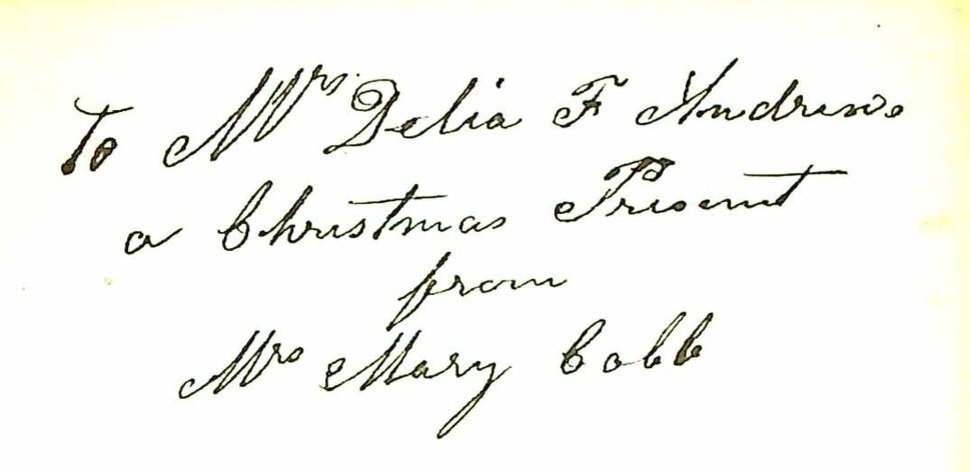 To Mrs Delia F Andrews
a Christmas Present
from
Mrs Mary Cobb